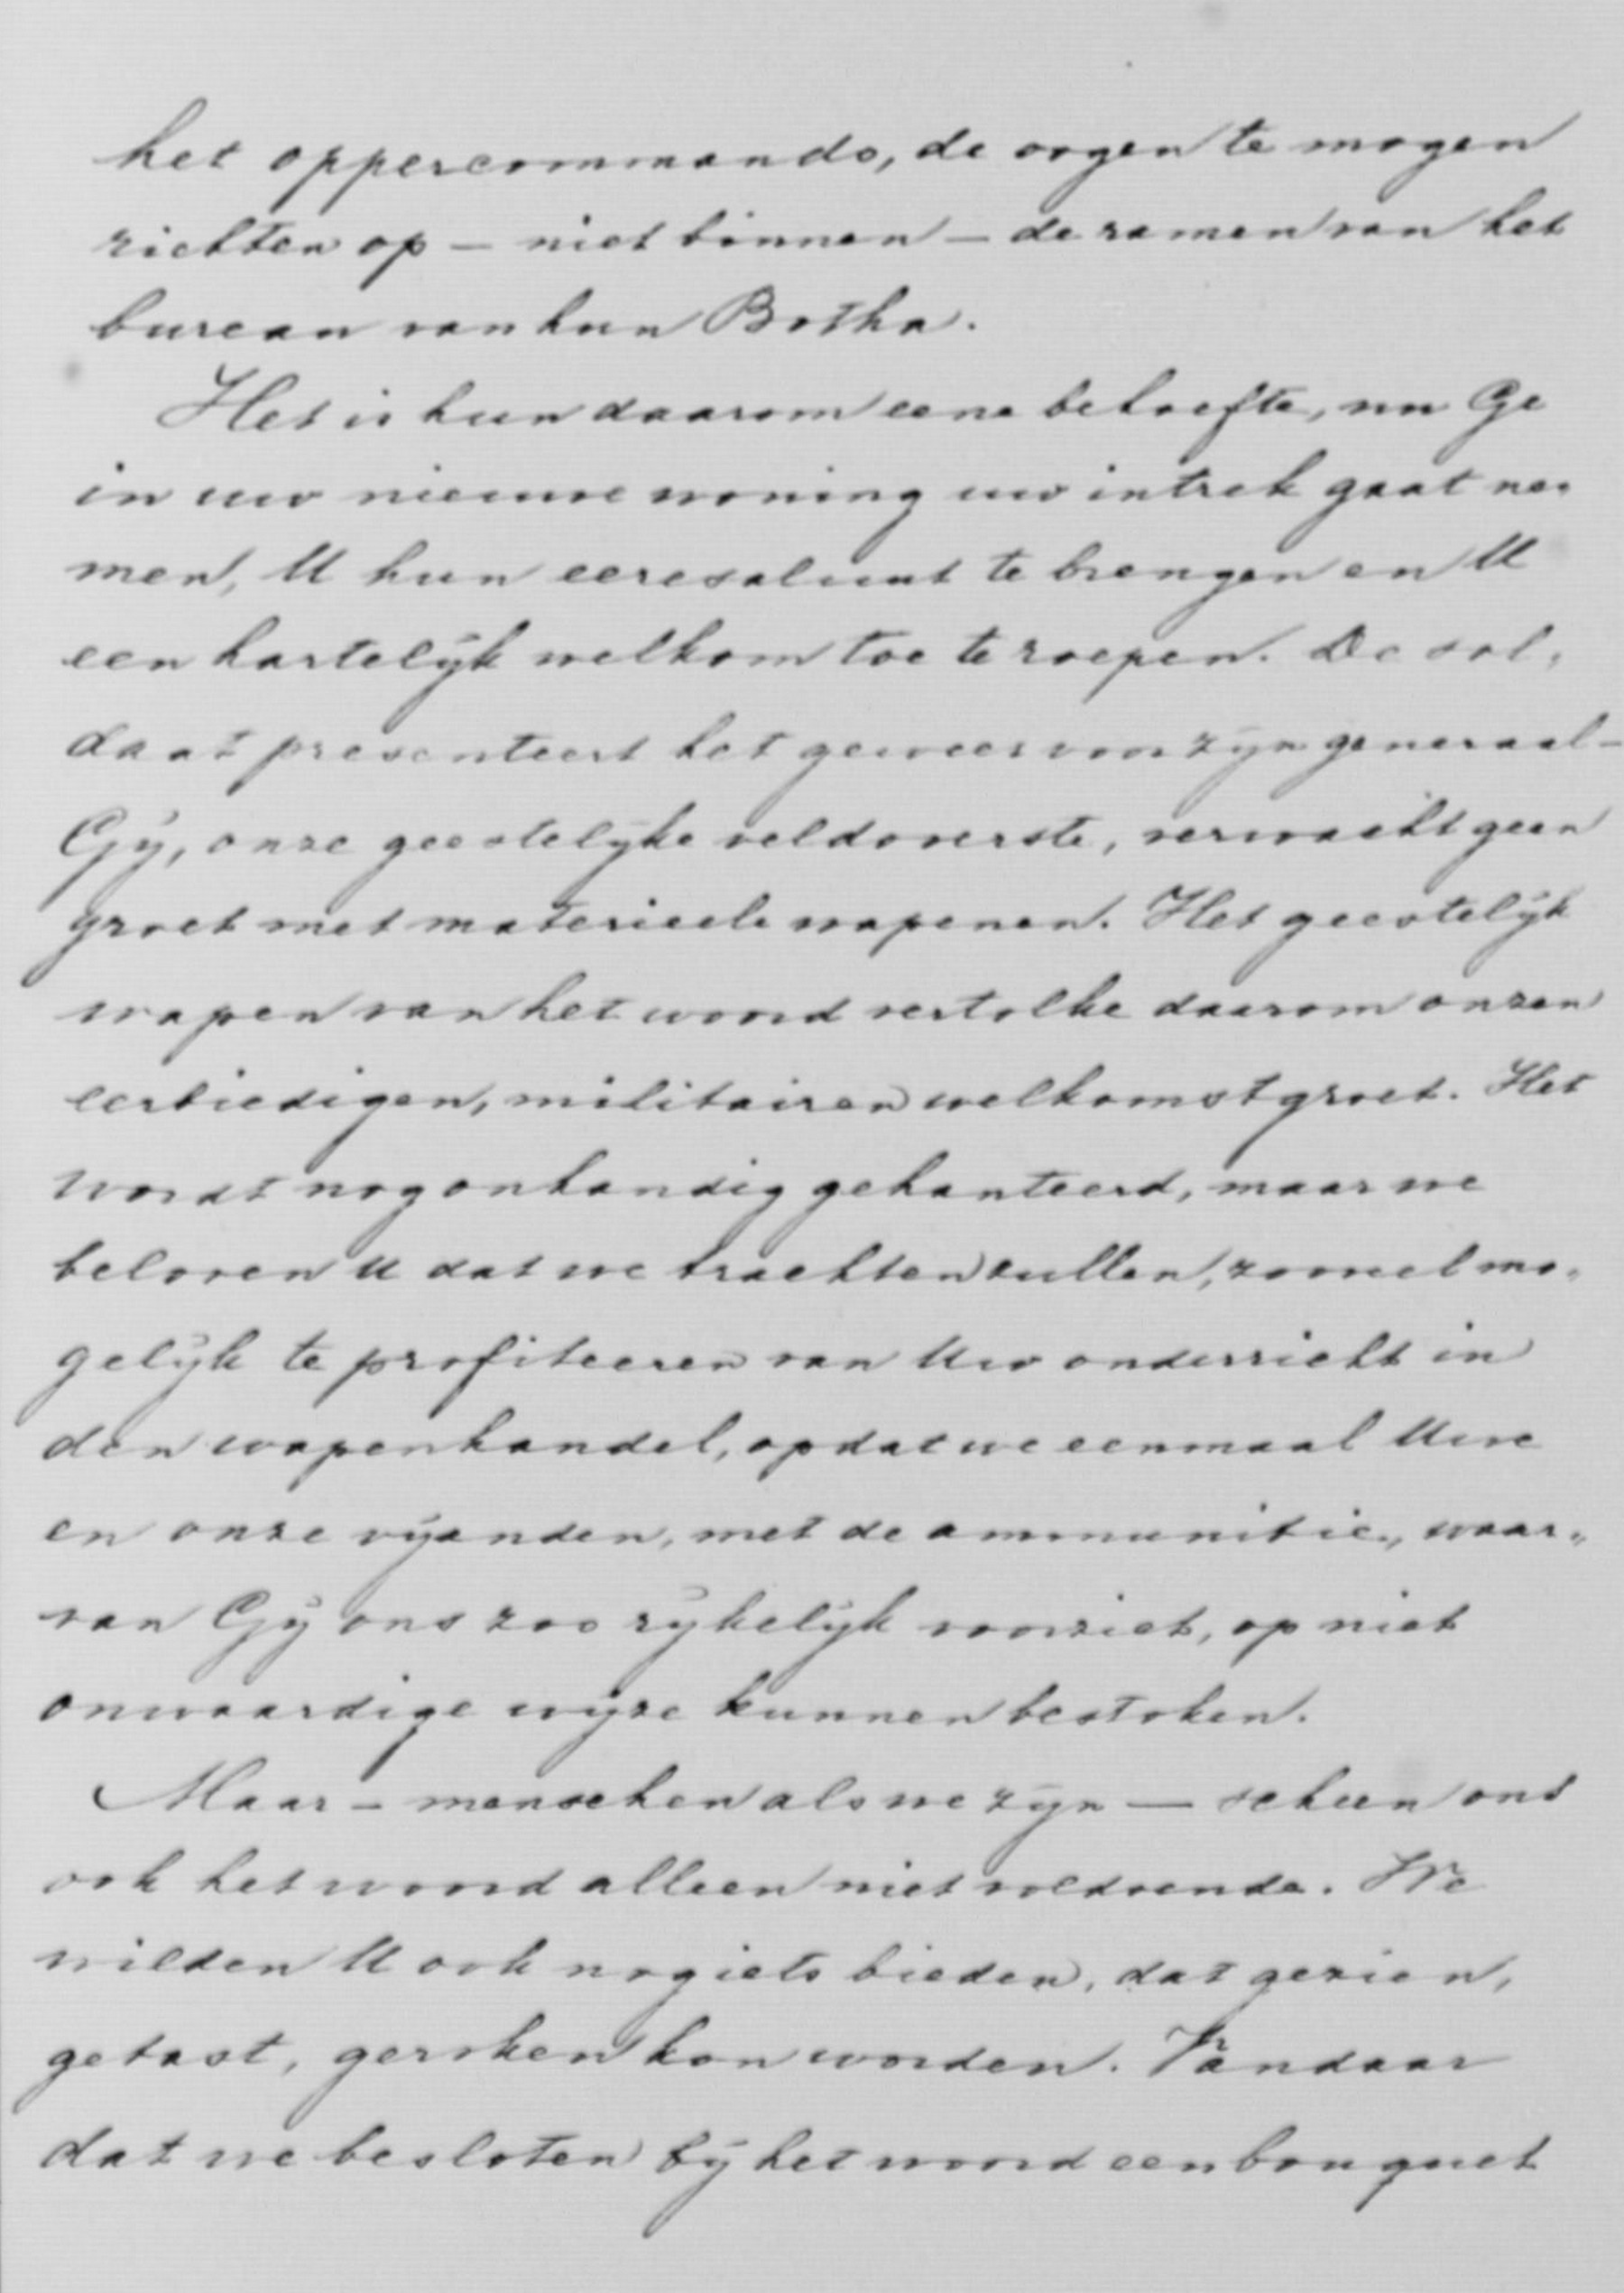 het oppercommando, de oogen te mogen
richten op — niet binnen — de ramen van het
bureau van hun Botha.
Het is hun daarom eene behoefte, nu Ge
in uw nieuwe woning uw intrek gaat ne„
men, U hun eeresaluut te brengen en U
een hartelijk welkom toe te roepen. De sol„
daat presenteert het geweer voor zijn generaal —
Gij, onze geestelijke veldoverste, verwacht geen
groet met materieele wapenen. Het geestelijk
wapen van het woord vertolke daarom onzen
eerbiedigen, militairen welkomstgroet. Het
wordt nog onhandig gehanteerd, maar we
beloven U dat we trachten zullen, zooveel mo„
gelijk te profiteeren van Uw onderricht in
den wapenhandel, opdat we eenmaal Uwe
en onze vijanden, met de ammunitie, waar„
van Gij ons zoo rijkelijk voorziet, op niet
onwaardige wijze kunnen bestoken.
Maar — menschen als we zijn — scheen ons
ook het woord alleen niet voldoende. We
wilden U ook nog iets bieden, dat gezien,
getast, geroken kon worden. Vandaar
dat we besloten bij het woord een bouquet